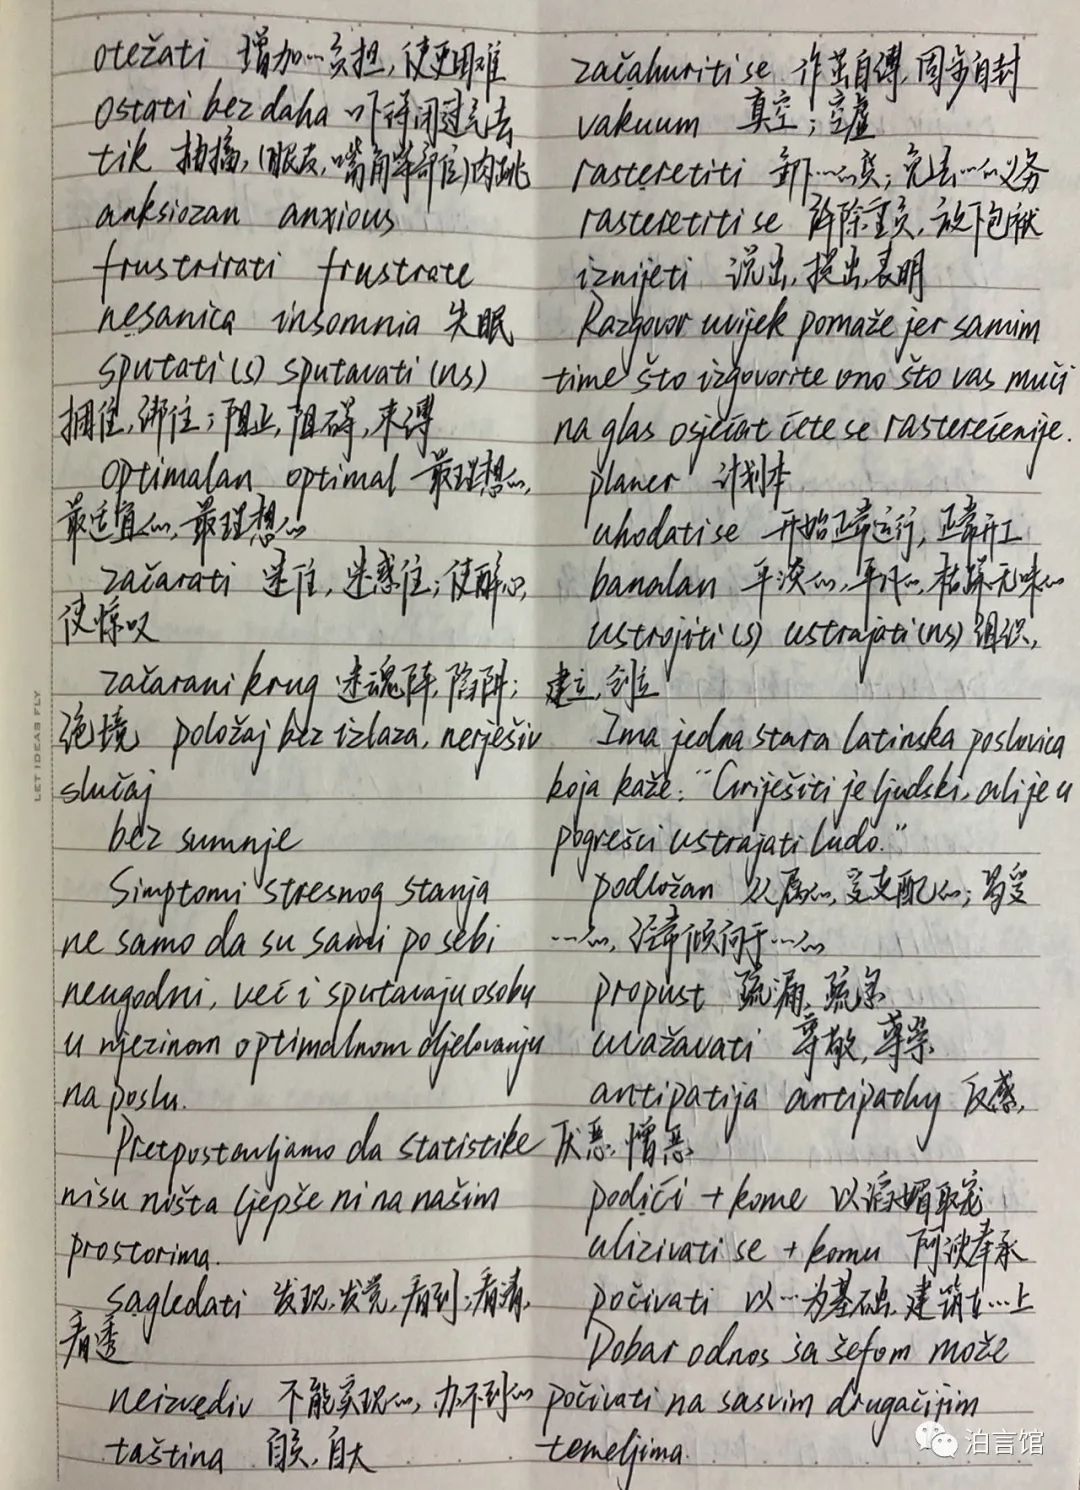 otežati 增加…负担,使更困难
ostati bez daha 吓得闭过气去
tik 抽搐,(眼皮,嘴角等部位)肉跳
anksiozan anxious
frustrirati frustrate
nesanica insomnia 失眠
sputati(s) sputavati(ns)
捆住,绑住;阻止,阻碍,束缚
optimalan optimal 最理想的,
最适宜的,最理想的
začarati 迷住,迷惑住;使醉心,
使惊叹
začarani krug 迷魂阵,陷阱;
绝境 položaj bez izlaza, nerješiv
slučaj
bez sumnje
Simptomi stresnog stanja
ne samo da su sami po sebi
neugodni, već i sputavaju osobu
u njezinom optimalnom djelovanju
na poslu.
Pretpostavljamo da statistike
nisu ništa ljepše ni na našim
prostorima.
sagledati 发现,发觉,看到;看清,
看透
neizvediv 不能实现的,办不到的
taština 自负,自大
začahuriti se 作茧自缚,固步自封
vakuum 真空;空虚
rasteretiti 卸下…的负;免去…的义务
rasteretiti se 解除重负,放下包袱
iznijeti 说出,提出,表明
Razgovor uvijek pomaže jer samim
time što izgovorite ono što vas muči
na glas osjećat ćete se rasterećenije.
planer 计划本
uhodati se 开始正常运行,正常开工
banalan 平淡的,平凡的,枯燥无味的
ustrojiti(s) ustrajati(ns) 组织,
建立,创立
Ima jedna stara latinska poslovica
koja kaže: "Griješiti je ljudski, ali je u
pogrešci ustrajati ludo."
podložan 从属的,受支配的;易受
…的,经常倾向于…的
propust 疏漏,疏忽
uvažavati 尊敬,尊崇
antipatija antipathy 反感,
厌恶,憎恶
podići + kome 以谄媚取宠
ulizivati se + komu 阿谀奉承
počivati 以…为基础,建筑在…上
Dobar odnos sa šefom može
počivati na sasvim drugačijim
temeljima.
LET IDEAS FLY
泊言馆